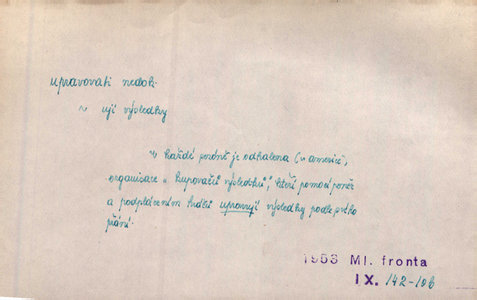 upravovati nedok.
~ ují výsledky
v každé sezóně je odhalena (v americe),
organisace „kupovačů výsledků", kteří pomocí peněz
a podplácením hráčů upravují výsledky podle svého
přání.
1953 Ml. fronta
IX. 142-10b